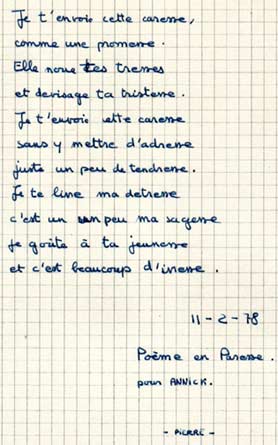 Je t'envoie cette caresse,
comme une promesse.
Elle noue tes tresses
et devisage ta tristesse.
Je t'envoie cette caresse
sans y mettre d'adresse
juste un peu de tendresse.
Je te livre ma detresse
c'est un peu ma sagesse
je goûte à ta jeunesse
et c'est beaucoup d'ivresse.
11-2-78
Poème en Paresse.
pour ANNICK.
- PIERRE -